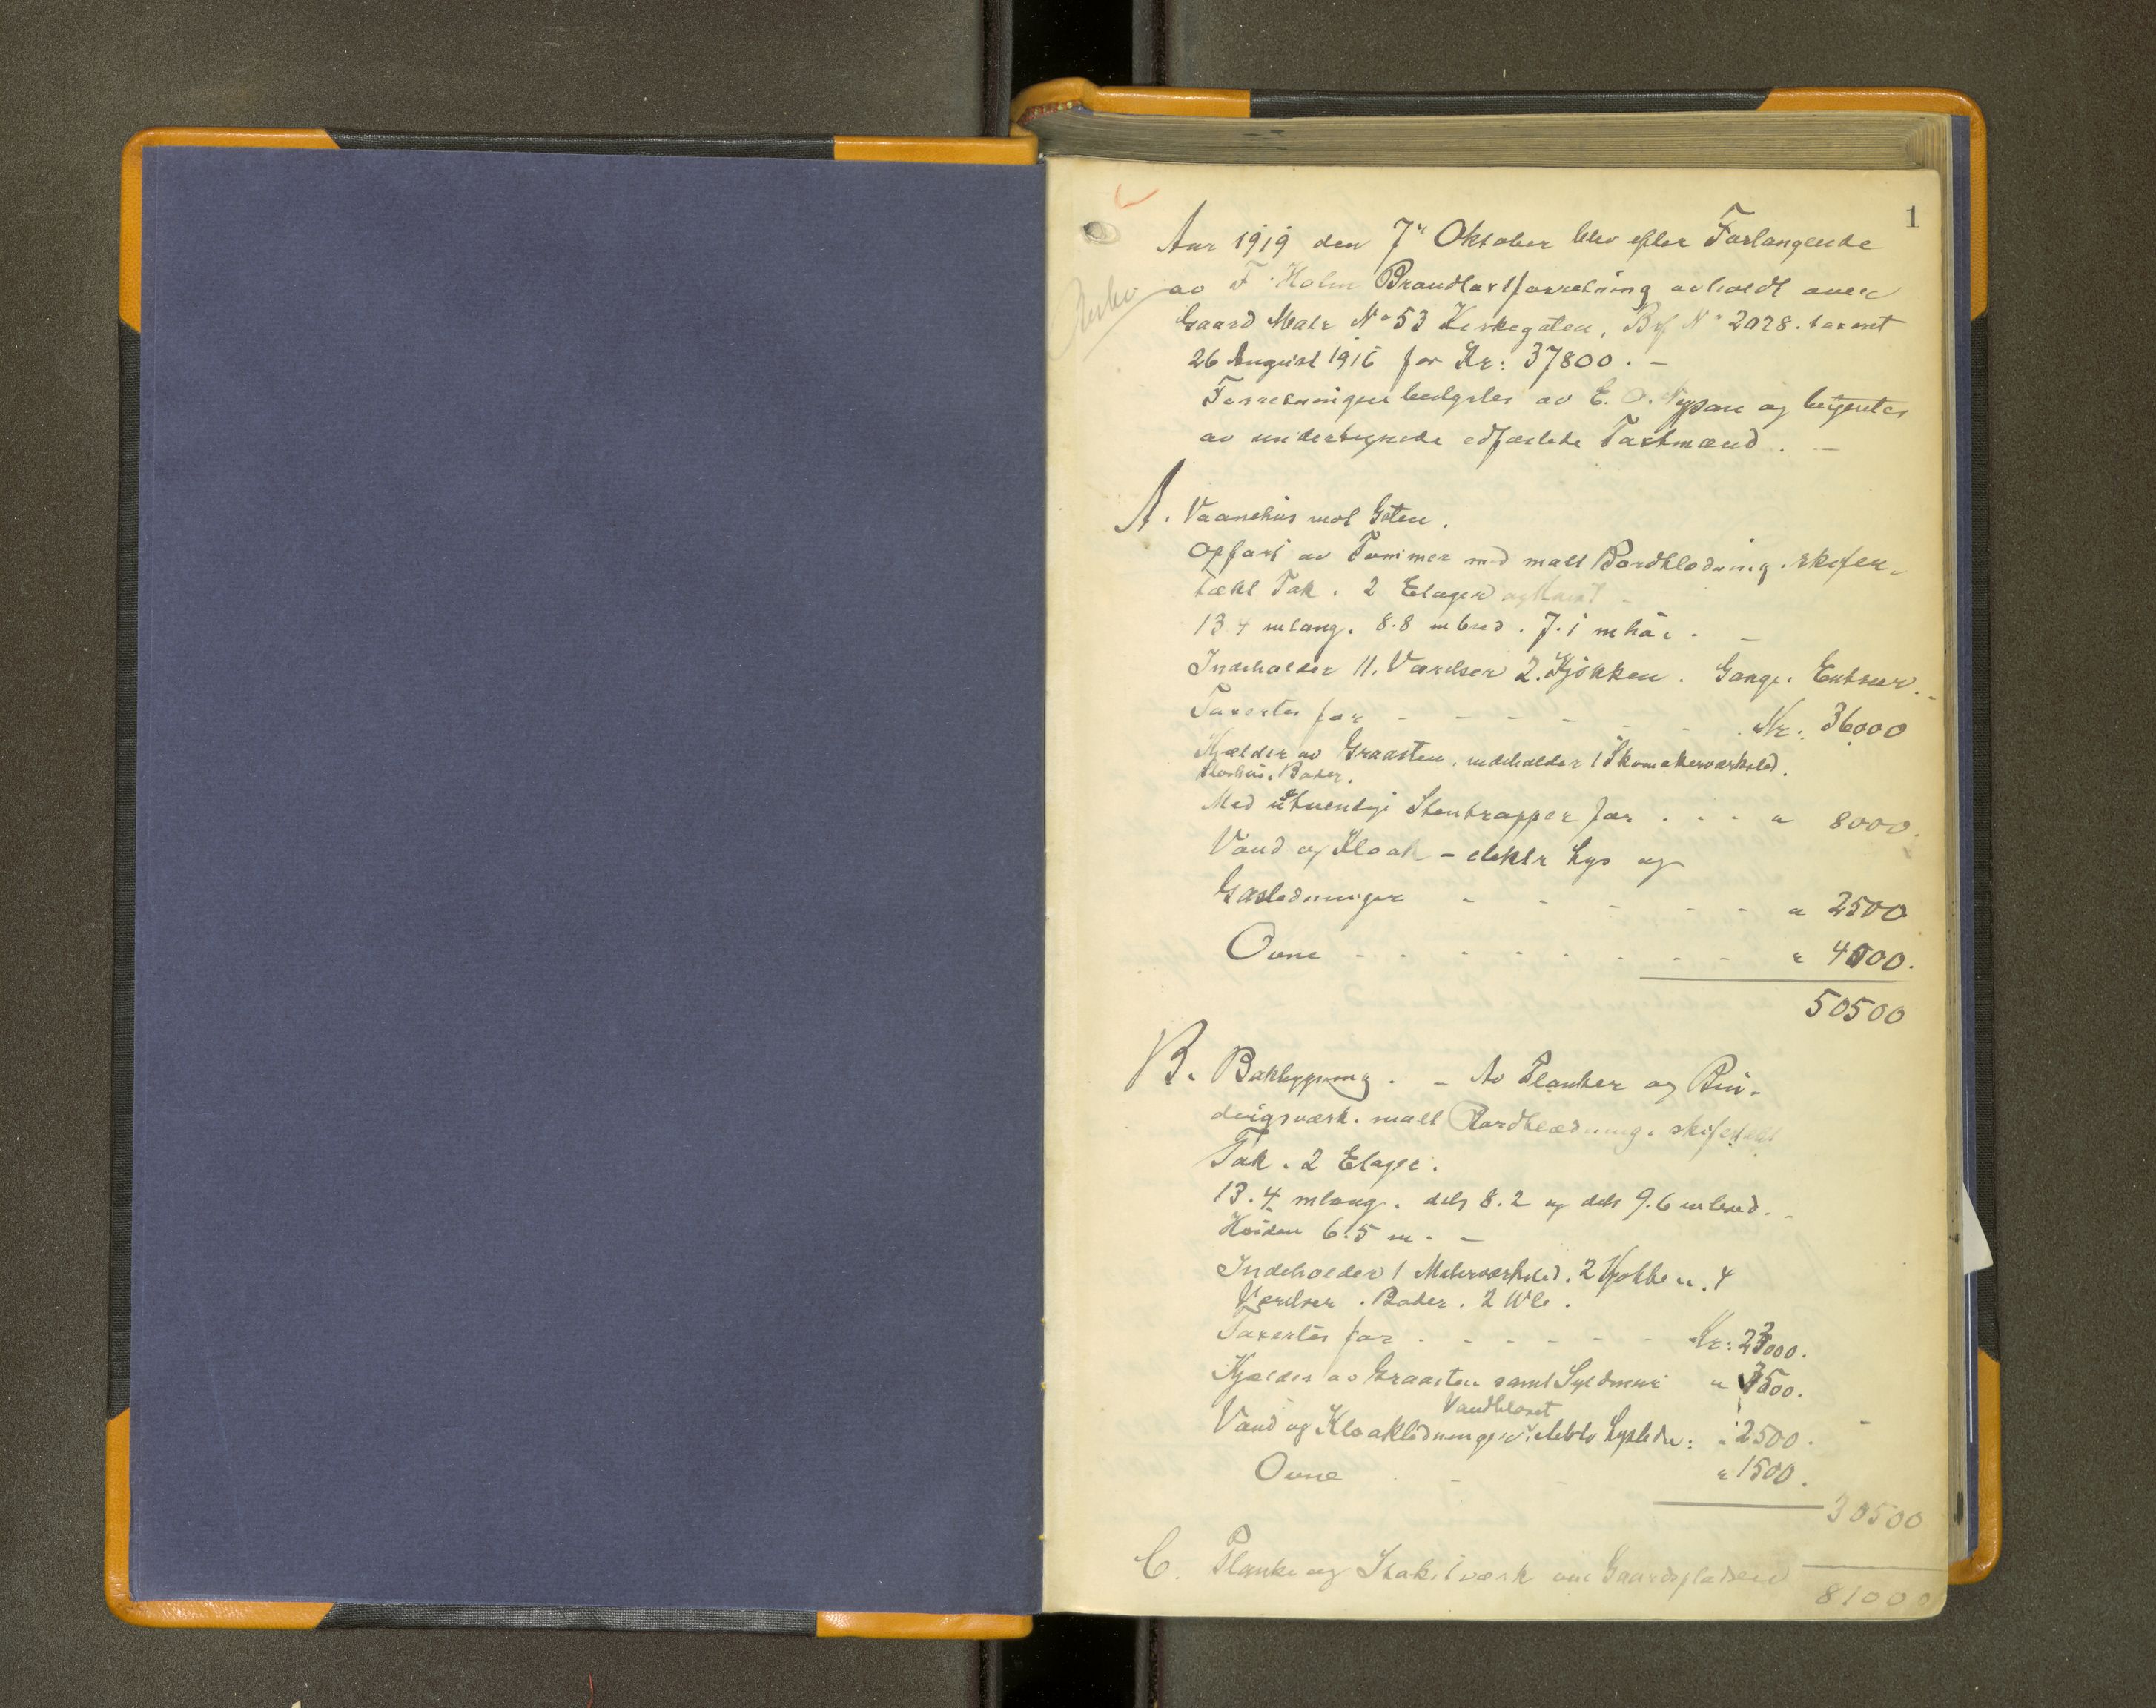 1
Aar 1919 den 7de Oktober blev efter Forlangende
av F. Holm Brandtaxtforretning avholdt over
Gaard Matr No 53 Kirkegaten, Brf No 2028. taxeret
26 August 1916 for Kr: 37800. -
Forretningen bestyrtes av E. O. Nypan og betjentes
av undertegnede edfæstede Taxtmænd. -
A. Vaanehus mot Gaten.
Opført av Tømmer med malt Bordklædning. skifer-
tækt Tak. 2 Etager og Kvist -
13.4 m lang. 8.8 m bred. 7.1 m høi. -
Indeholder 11. Værelser 2. Kjøkken. Gange. Entreer. -
Taxertes for - - - - - - Kr: 36000
Kjælder av Graasten. indeholder 1 Skomakerværksted.
Boder.
Med utvendige Stentrapper for . . . " 8000.
Vand og Kloak - elektr Lys og
Gasledninger - - - - - - " 2500
Ovne - - - - - - - - " 4000.
50500
B. Bakbygning. - Av Planker og Bin-
dingsværk. malt Bordklædning. skifertækt
Tak. 2 Etager.
13.4 m lang. dels 8.2 og dels 9.6 m bred. -
Høiden 6.5 m. -
Indeholder 1 Malerværksted. 2 Kjøkken. 4
Værelser. Boder. 2 Wc.
Taxertes for . - - - - - Kr: 23000.
Kjælder av Graasten samt Syldmur " 3500.
Vandkloset
Vand og Kloakledninger elektr Lysledn: " 2500.
Ovne - - " 1500.
30500
C. Planke og Stakitværk om Gaardspladsen
81000